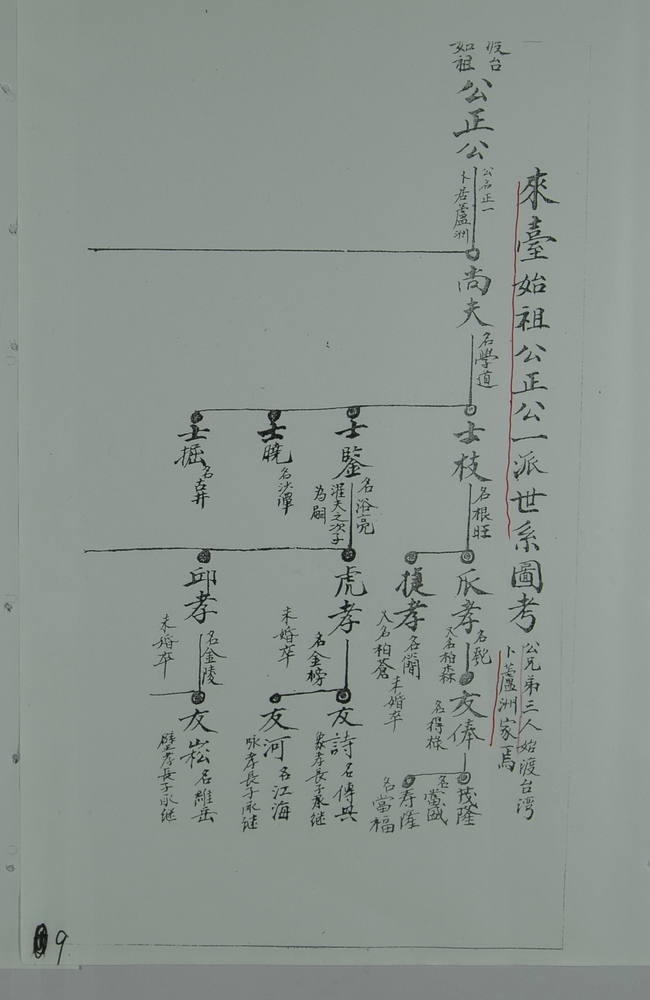 來臺始祖公正公一派世系圖考
公兄弟三人始渡台湾
卜蘆洲家焉
渡台
始祖
公正公
公名正一
卜居蘆洲
尚夫
名學道
士枝
名根旺
士鑒
名浴亮
濯夫之次子
為嗣
士曉
士掘
爪孝
又名柏森
捷孝
名簡
又名柏蒼
未婚卒
虎孝
名金榜
未婚卒
邱孝
名金陵
未婚卒
友俸
名得樣
友詩
名傳興
長子承繼
友河
名江海
咏孝長子承継
友崧
名維岳
壁孝長子承継
茂隆
名黨盛
寿隆
名當福
9